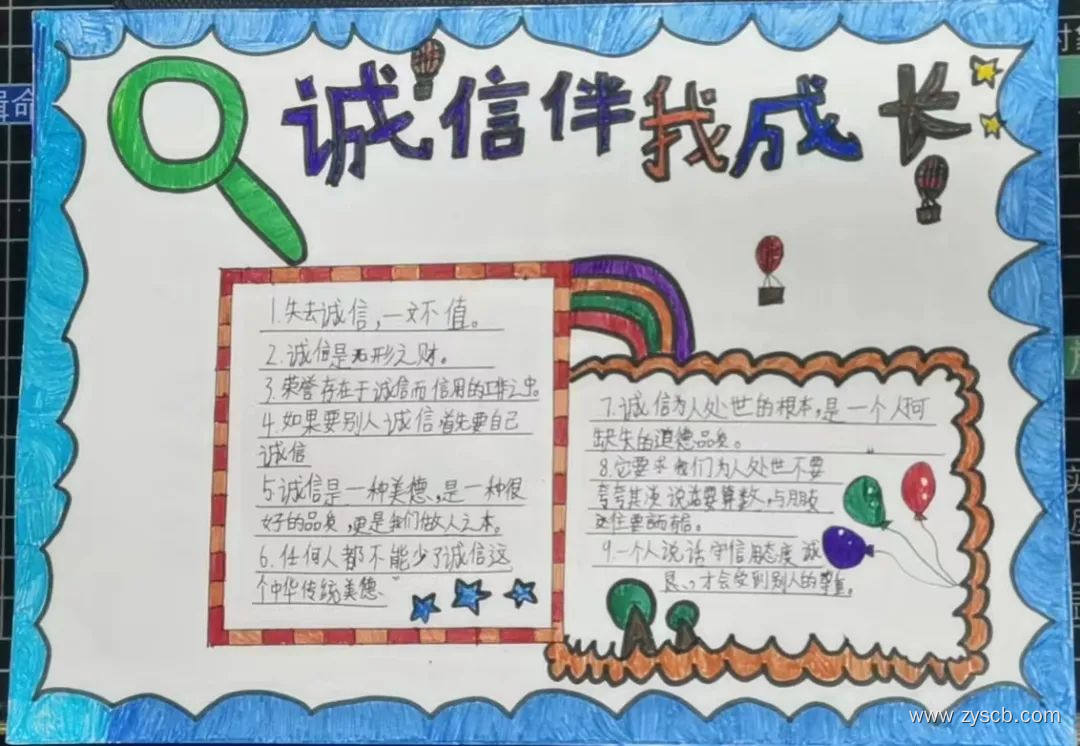 诚信伴我成长
1.失去诚信,一文不值。
2.诚信是无形之财。
3.荣誉存在于诚信而信用的工作之中。
4.如果要别人诚信首先要自己
诚信
5.诚信是一种美德,是一种很
好的品质,更是我们做人之本。
6.任何人都不能少了诚信这
个中华传统美德
7.诚信为人处世的根本,是一个人不可
缺失的道德品质。
8.它要求我们为人处世不要
夸夸其谈 说话要算数,与朋友
交往要言而有信。
9.一个人说话守信用态度诚
恳,才会受到别人的尊重。
www.zyscb.com